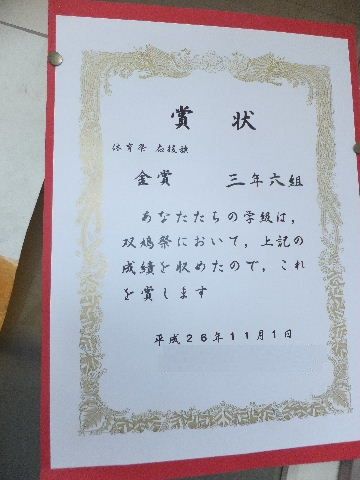 賞状
体育祭 応援旗
金賞 三年六組
あなたたちの学級は,
双鳩祭において,上記の
成績を収めたので,これ
を賞します
平成26年11月1日